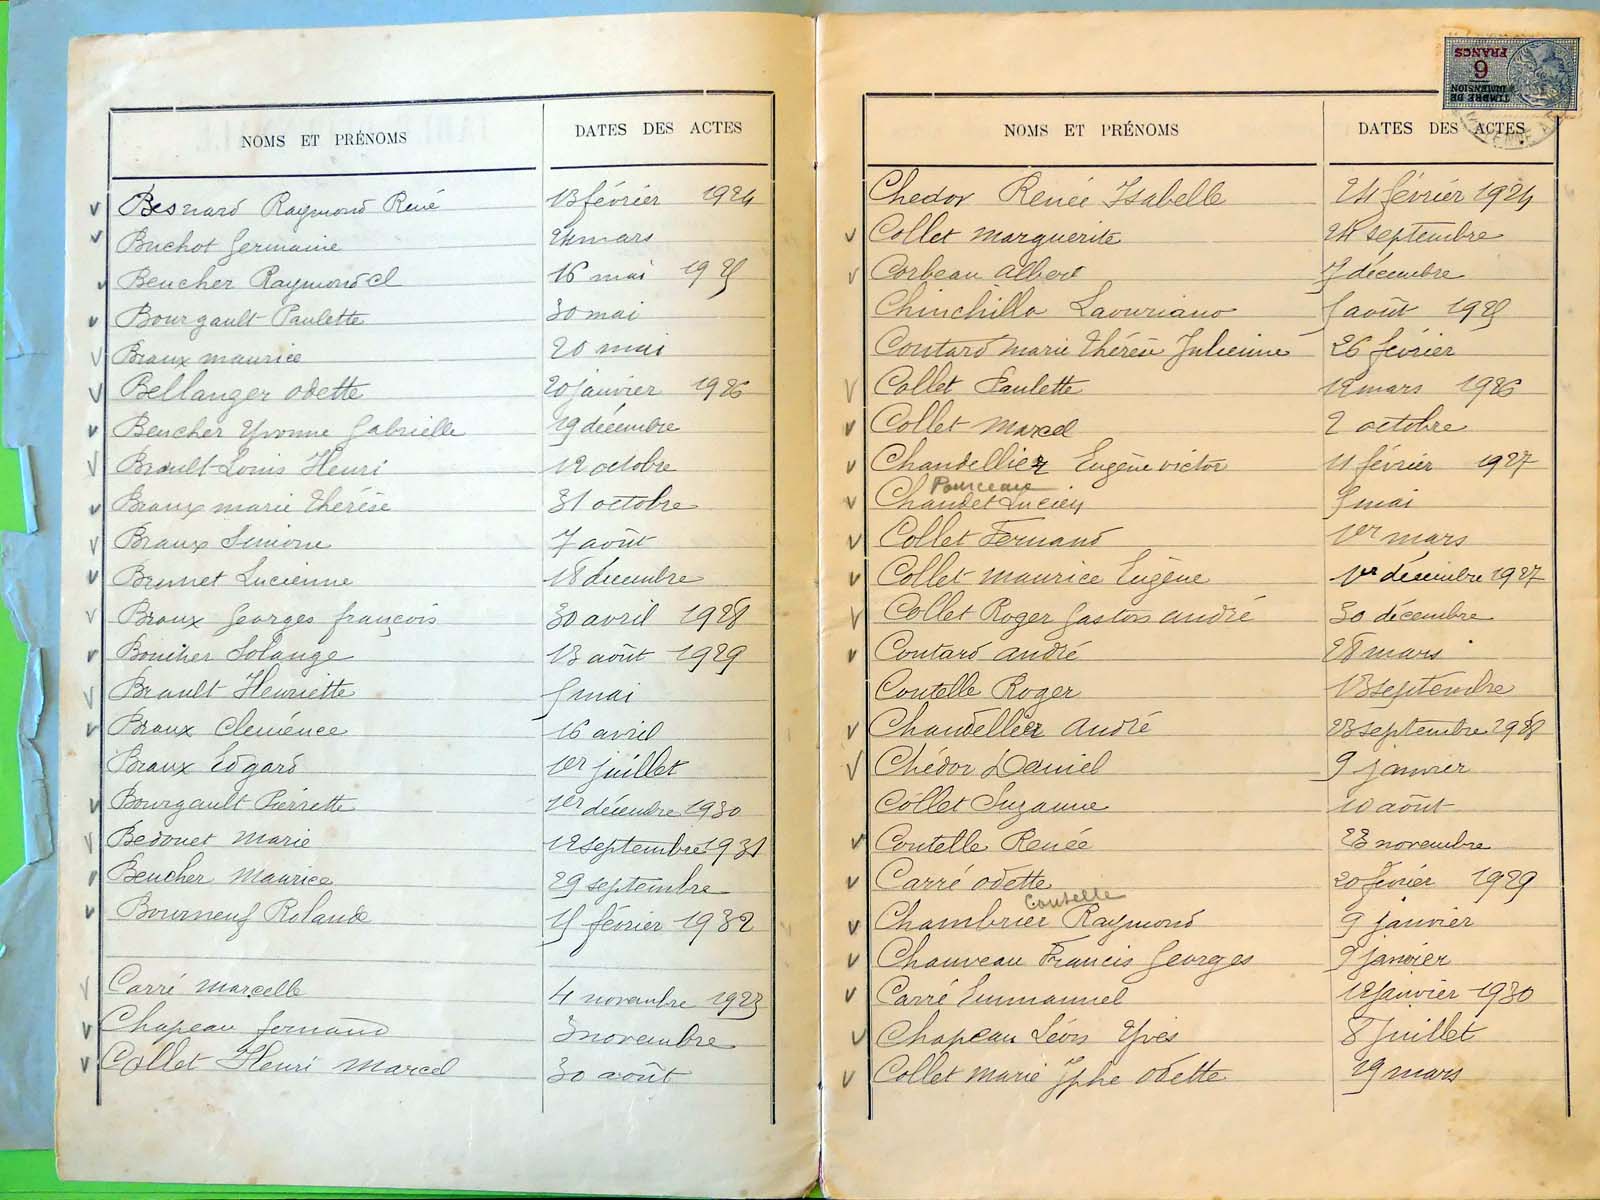 NOMS ET PRÉNOMS DATES DES ACTES
Besnard Raymond René 13 février 1924
Buchot Germaine 24 mars
Beucher Raymond 16 mai 1925
Bourgault Paulette 30 mai
Braux maurice 20 mai
Bellanger Odette 20 janvier 1926
Beucher Yvonne Gabrielle 29 décembre
Brault Louis Henri 12 octobre
Braux marie thérèse 31 octobre
Braux Simone 7 août
Brunet Lucienne 18 décembre
Braux Georges françois 30 avril 1928
Boucher Solange 13 août 1929
Brault Henriette 5 mai
Braux Clémence 16 avril
Braux Edgard 1er juillet
Bourgault Pierrette 1er décembre 1930
Bedouet Marie 12 septembre 1931
Beucher Maurice 29 septembre
Bourneuf Rolande 15 février 1932
Carré Marcelle 4 novembre 1923
Chapeau fernand 3 novembre
Collet Henri Marcel 30 août
TIMBRE DE DIMENSION
6 FRANCS
NOMS ET PRÉNOMS DATES DES ACTES
Chedor Renée Isabelle 24 février 1924
Collet Marguerite 24 septembre
Corbeau Albert 7 décembre
Chinchilla Laouriano 5 août 1925
Coutard Marie thérèse Julienne 26 février
Collet Paulette 12 mars 1926
Collet Marcel 2 octobre
Chandellier Eugène victor 11 février 1927
Pourceau
Chaudet Lucien 5 mai
Collet Fernand 1er mars
Collet Maurice Eugène 1er décembre 1927
Collet Roger Gaston andré 30 décembre
Coutard andré 28 mars
Coutelle Roger 13 septembre
Chandellier André 23 septembre 1928
Chédor Daniel 9 janvier
Collet Suzanne 10 août
Coutelle Renée 23 novembre
Carré Odette 20 février 1929
Coutelle
Chambrier Raymond 9 janvier
Chauveau Francis Georges 9 janvier
Carré Emmanuel 12 janvier 1930
Chapeau Léon Yves 8 Juillet
Collet Marie Jphe Odette 29 mars